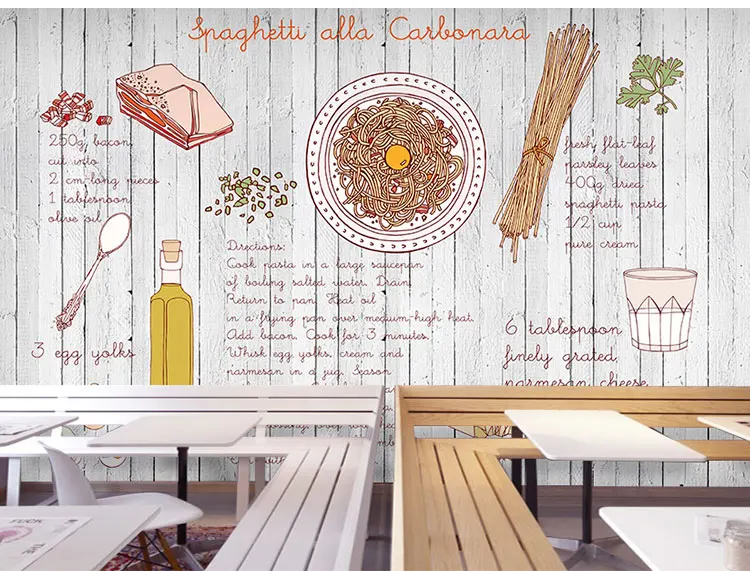 Spaghetti alla Carbonara
250g bacon,
cut into
2 cm-long pieces
1 tablespoon
olive oil
fresh flat-leaf
parsley leaves
400g dried
spaghetti pasta
1/2 cup
pure cream
Directions:
Cook pasta in a large saucepan
of boiling salted water. Drain.
Return to pan. Heat oil
in a frying pan over medium-high heat.
Add bacon. Cook for 3 minutes.
Whisk egg yolks, cream and
parmesan in a jug. Season
3 egg yolks
6 tablespoon
finely grated
parmesan cheese